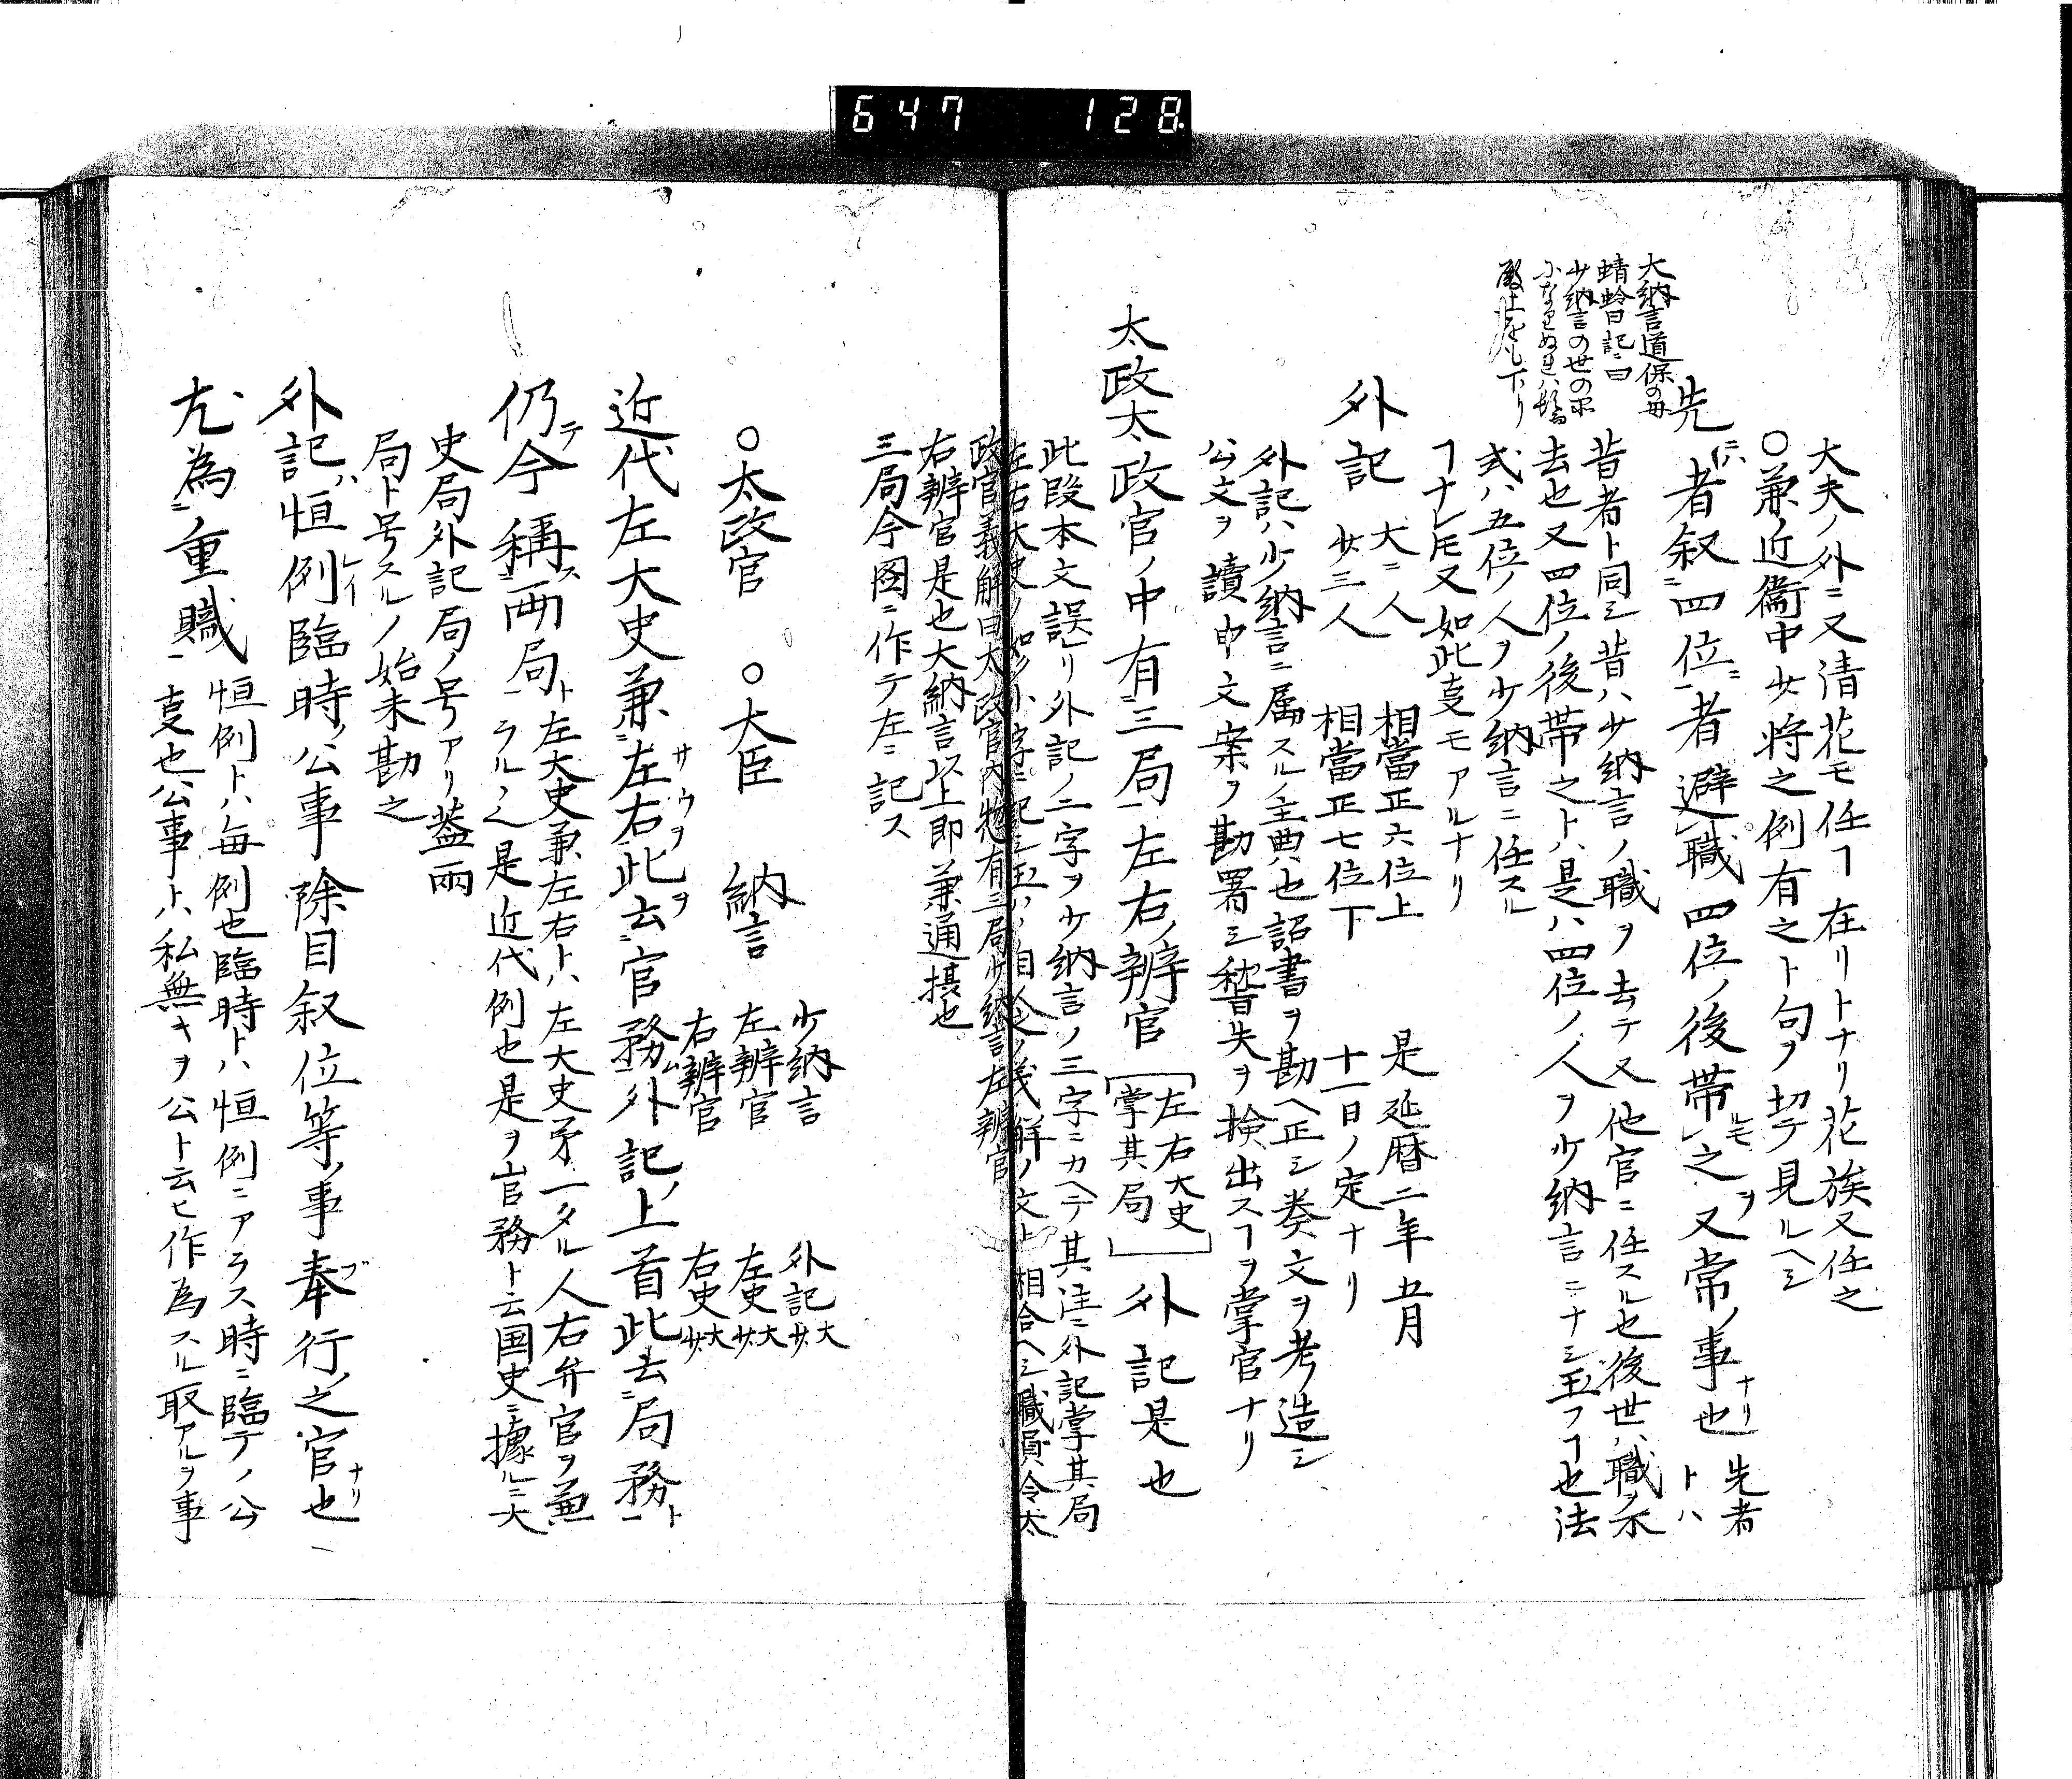 647 128
大夫ノ外ニ又清花モ任ヿ在リトナリ花族又任之
〇兼近衞中少将之例有之ト句ヲ切テ見ルヘシ
先者叙四位者避職四位ノ後帯之又常ノ事也 先者トハ
昔者ト同シ昔ハ少納言ノ職ヲ去テ又他官ニ任スル也後世ハ職ヲ不
去也又四位ノ後帯之トハ是ハ四位ノ人ヲ少納言ニナシ玉フヿ也法
式ハ五位ノ人ヲ少納言ニ任スル
ヿナレトモ又如此事モアルナリ
大納言道保の母
蜻蛉日記ニ曰
少納言の世の
殿上をも下り
外記 大二人 相當正六位上
少三人 相當正七位下
是延暦二年五月
十一日ノ定ナリ
外記ハ少納言ニ属スル主典也詔書ヲ勘ヘ正シ奏文ヲ考造シ
公文ヲ讀申文案ヲ勘署シ稽失ヲ検出スルヿヲ掌官ナリ
太政太政官ノ中有三局左右ノ辨官 左右大史掌其局 外記是也
此段本文誤リ外記ノ二字ヲ少納言ノ三字ニカヘテ其注ニ外記掌其局
左右大史ノ如ク小字ニ記シ玉ハヽ自令ノ義解ノ文ト相合ヘシ職員令太
政官義解曰太政官内惣有三局少納言左辨官
右辨官是也大納言以上即兼通摂也
三局今図ニ作テ左ニ記ス
〇太政官 〇大臣 納言
少納言 外記大少
左辨官 左史大少
右辨官 右史大少
近代左大史兼左右此云官務外記ノ上首此云局務
仍テ今稱両局ト 左大史兼左右トハ左大史矛一タル人右弁官ヲ兼
ラルヽ是近代例也是ヲ官務ト云国史ニ據ルニ大
史局外記局ノ号アリ蓋両
局ト号スルノ始未勘之
外記ハ恒例臨時ノ公事除目叙位等ノ事奉行之官也
尤為重職 恒例トハ毎例也臨時トハ恒例ニアラス時ニ臨テノ公
事也公事トハ私無キヲ公ト云ヒ作為スル取アルヲ事